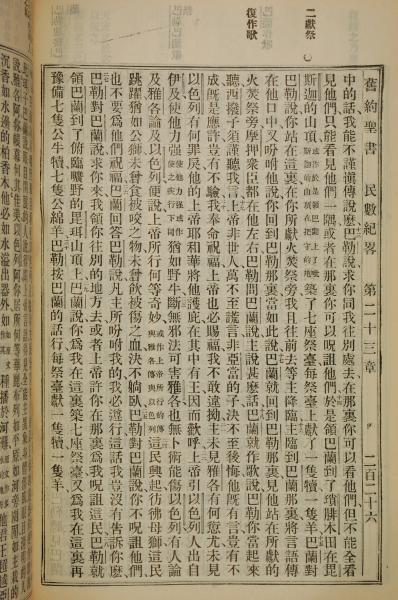 舊約聖書 民數紀畧 第二十三章 二百二十六
中的話我能不謹慎傳說麽巴勒說求你同我往別處去在那裏你可以看他們但不能全看
見他們只能看見他們一隅或者在那裏你可以呪詛他們於是領巴蘭到了瑣腓木田在毘
斯迦的山頂築了七座祭臺每祭臺上獻了一隻犢一隻羊巴蘭對
巴勒說你站在這裏在你所獻火焚祭旁我且往前去等主降臨主臨到巴蘭那裏將言語傳
在他口中又吩咐他說你回到巴勒那裏當如此說巴蘭就回到巴勒那裏見他站在所獻的
火焚祭旁摩押衆臣都在他左右巴勒問巴蘭說主說甚麽話巴蘭就作歌說巴勒你當起來
聽西撥子須謹聽我言上帝非世人萬不至謊言非亞當的子決不至後悔他旣有言豈有不
成旣是應許豈有不驗我奉命祝福上帝也必賜福我不敢違拗主未見雅各有何愆尤未見
以色列有何罪戾他的上帝耶和華將他護庇在其中有王因而歡呼上帝引以色列人出自
伊及使他力强猶如野牛斷無邪法可害雅各也無卜術能傷以色列有人論
及雅各論及以色列便說上帝所行何等奇妙這民興起彷彿母獅這民
跳躍猶如公獅未曾食被咬之物未曾飲被傷之血決不躺臥巴勒對巴蘭說你不呪詛他們
也不要爲他們祝福巴蘭回答巴勒說凡主所吩咐我的我必遵行這話我豈沒有告訴你麽
巴勒對巴蘭說求你來我領你往別的地方去或者上帝許你在那裏爲我呪詛這民巴勒就
領巴蘭到了俯臨曠野的毘珥山頂上巴蘭說你爲我在這裏築七座祭臺又爲我在這裏再
豫備七隻公牛犢七隻公綿羊巴勒按巴蘭的話行每祭臺獻一隻犢一隻羊
二獻祭
復作歌
沉香如水邊的柏香木他必如水溢出器外如